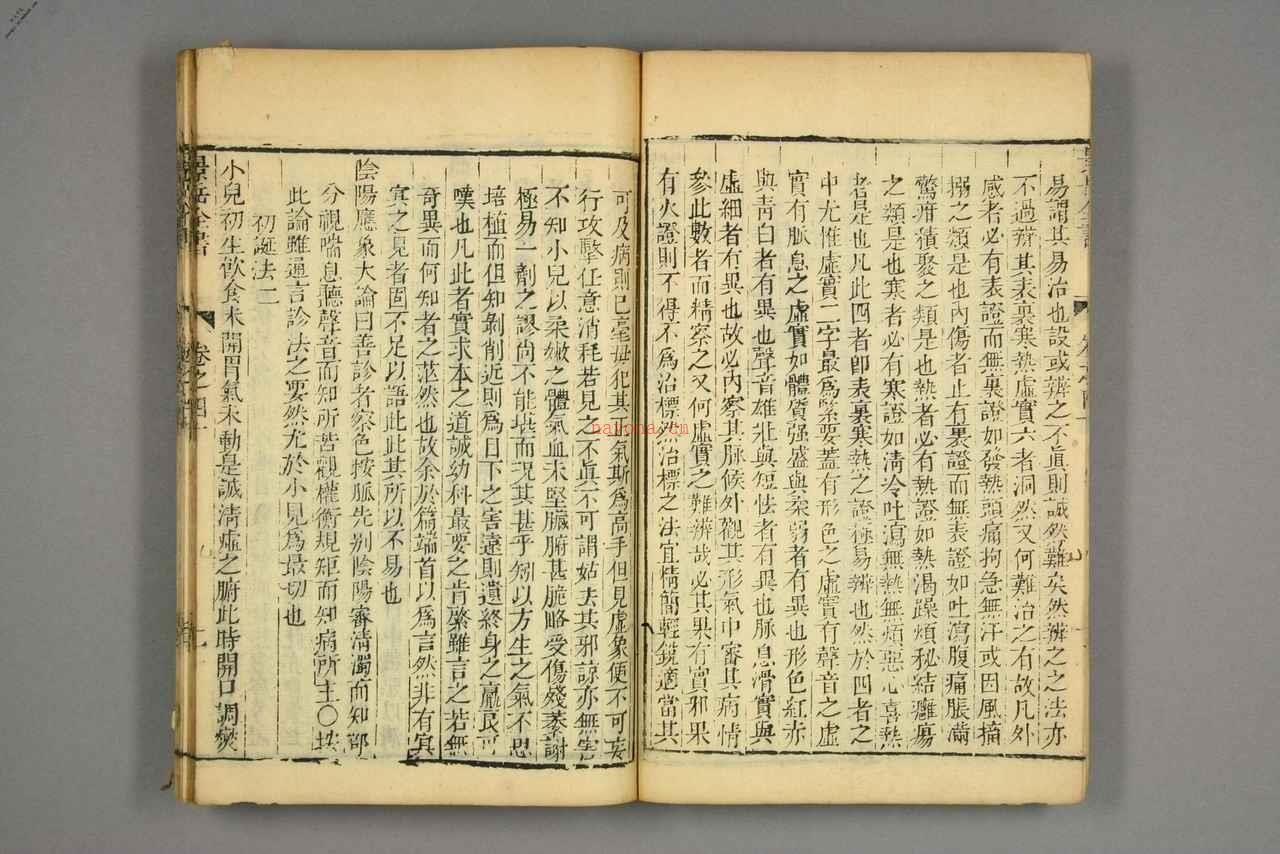 易謂其易治也設或辨之不眞則誠然難矣然辨之之法亦
不過辨其表裏寒熱虛實六者洞然又何難治之有故凡外
感者必有表證而無裏證如發熱頭痛拘急無汗或因風搐
搦之類是也內傷者止有裏證而無表證如吐瀉腹痛脹滿
驚疳積聚之類是也熱者必有熱證如熱渴躁煩秘結癰瘍
之類是也寒者必有寒證如清冷吐瀉無熱無煩惡心喜熱
者是也凡此四者卽表裏寒熱之證極易辨也然於四者之
中尤惟虛實二字最爲緊要蓋有形色之虛實有聲音之虛
實有脈息之虛實如體質强盛與柔弱者有異也形色紅赤
與靑白者有異也聲音雄壯與短怯者有異也脈息滑實與
虛細者有異也故必內察其脈候外觀其形氣中審其病情
參此數者而精察之又何虛實之難辨哉必其果有實邪果
有火證則不得不爲治標然治標之法宜精簡輕銳適當其
可及病則已毫毋犯其 氣斯爲高手但見虛象便不可妄
行攻擊任意消耗若見之不眞不可謂姑去其邪諒亦無害
不知小兒以柔嫩之體氣血未堅臟腑甚脆略受傷殘萎謝
極易一劑之謬尚不能堪而况其甚乎矧以方生之氣不思
培植而但知剝削近則爲目下之害遠則遺終身之羸良可
嘆也凡此者實求本之道誠幼科最要之肯綮雖言之若無
奇異而何知者之茫然也故余於篇端首以爲言然非有冥
冥之見者固不足以語此此其所以不易也
陰陽應象大論曰善診者察色按脈先別陰陽審清濁而知部
分視喘息聽聲音而知所苦觀權衡規矩而知病所主〇按
此論雖通言診法之要然尤於小兒爲最切也
初誕法二
小兒初生飲食未開胃氣未動是誠清虛之腑此時開口調燮
景岳全書
卷之四十
nalona.cn